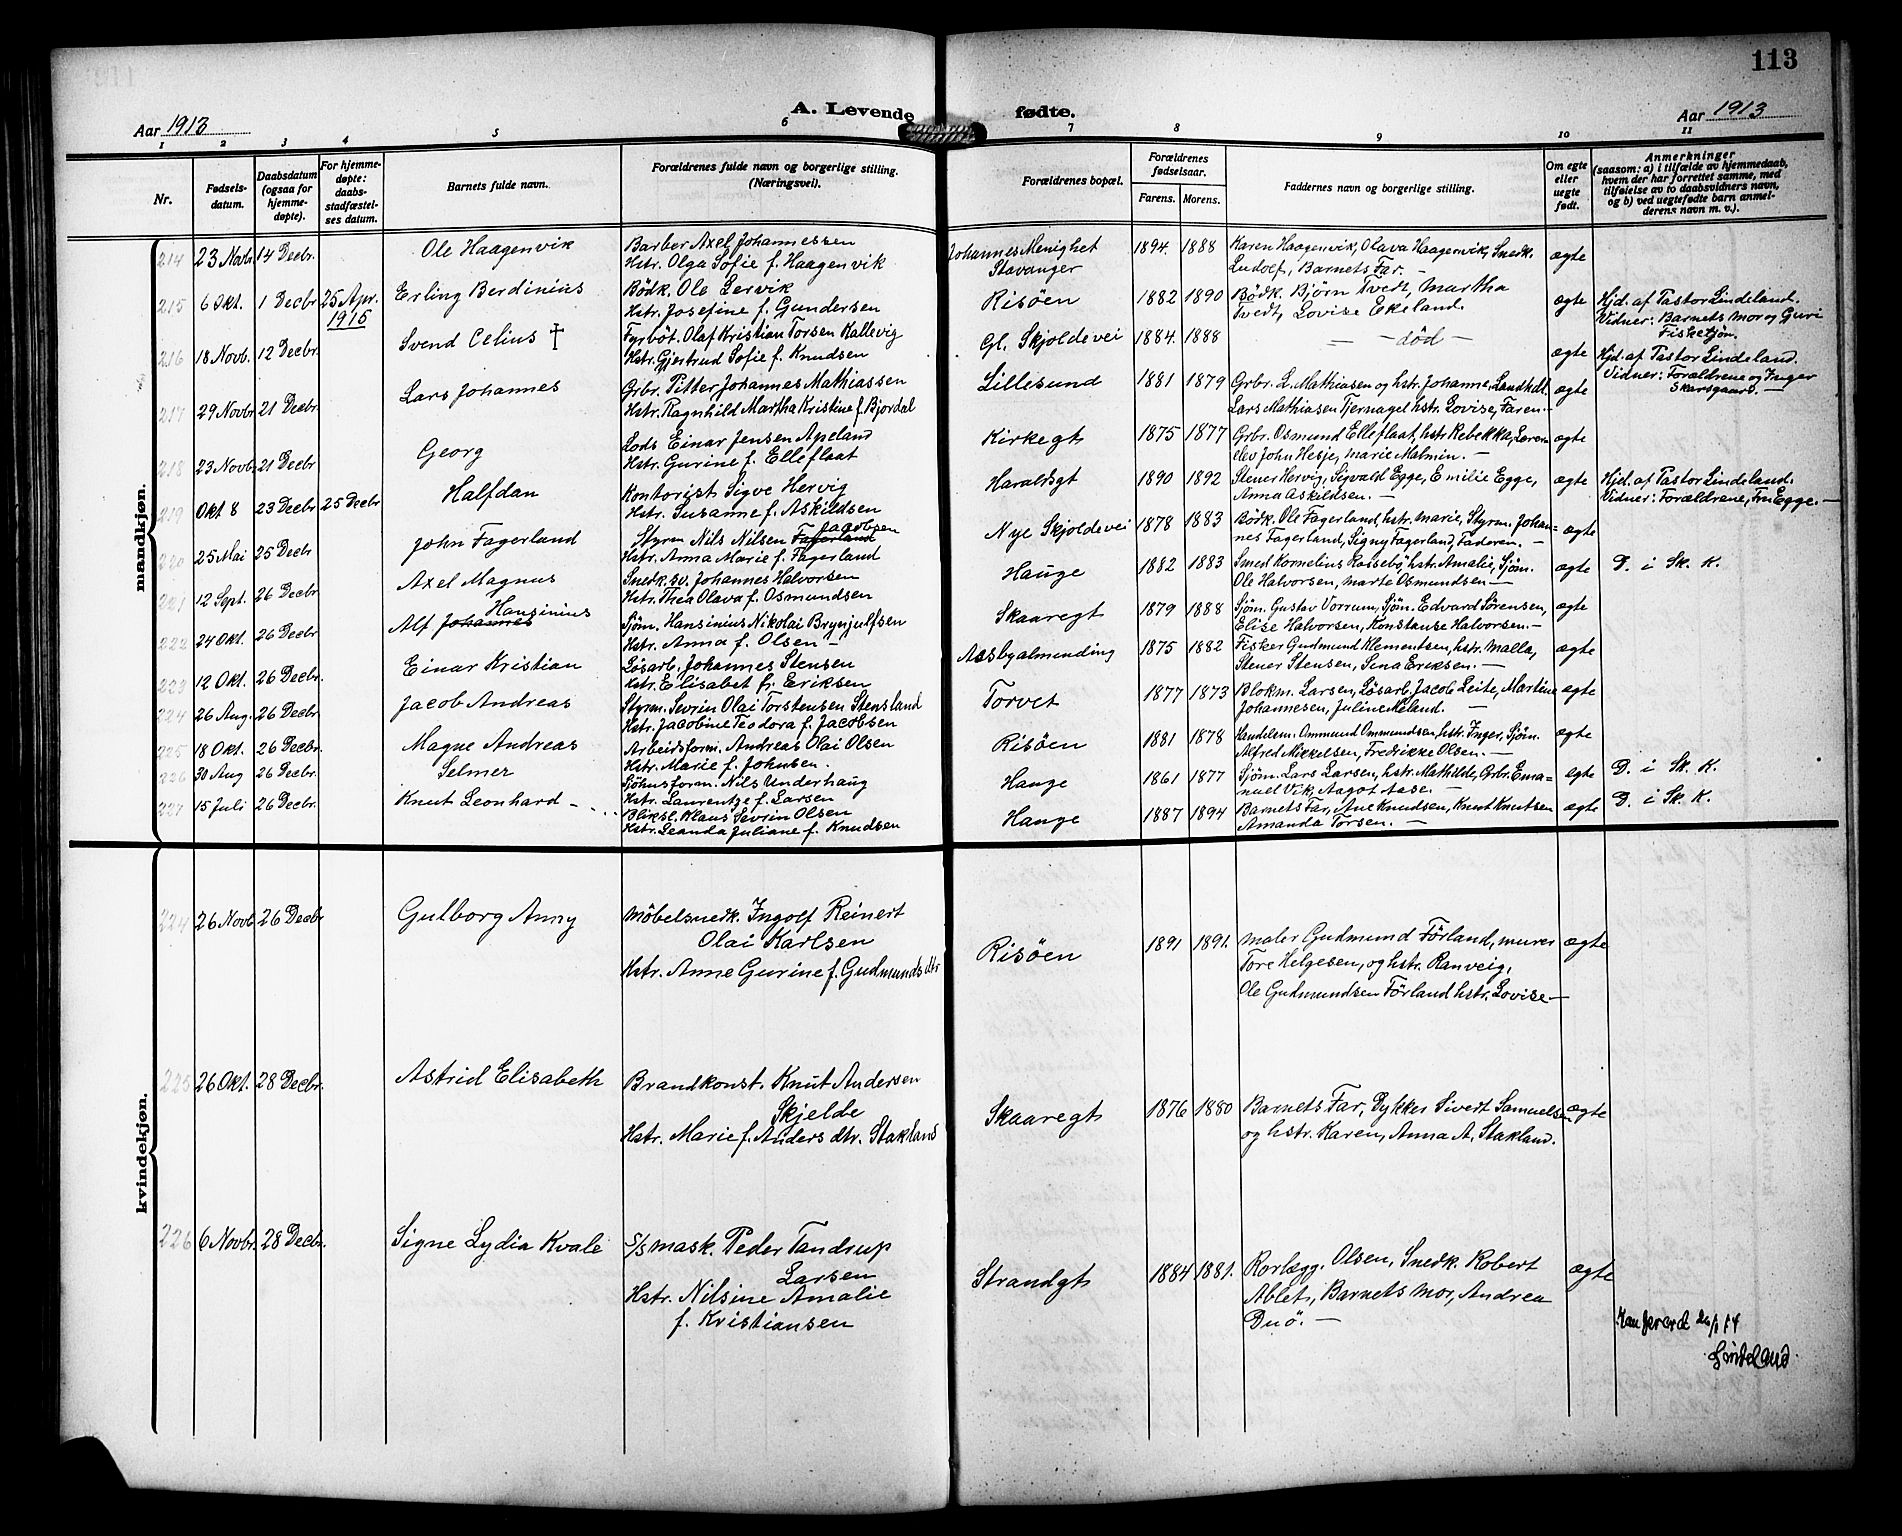 113
A. Levende fødte.
Aar 1913 Aar 1913
1 2 3 4 5 6 7 8 9 10 11
Nr.
Fødsels-
datum.
Daabsdatum
(ogsaa for
hjemme-
døpte).
For hjemme-
døpte:
daabs-
stadfæstel-
ses datum.
Barnets fulde navn.
Forældrenes fulde navn og borgerlige stilling.
(Næringsvei).
Forældrenes bopæl.
Forældrenes
fødselsaar.
Farens. Morens.
Faddernes navn og borgerlige stilling.
Om egte
eller
uegte
født.
Anmerkninger
(saasom: a) i tilfælde av hjemmedaab,
hvem der har forrettet samme, med
tilføielse av to daabsvidners navn,
og b) ved uegtefødte barn anmel-
derens navn m. v.).
mandkjøn.
214 23 Novbr 14 Decbr. Ole Haagenvik Barber Axel Johannessen Johannes Menighet 1894. 1888 Karen Haagenvik, Olava Haagenvik, Snedk. ægte
Hstr. Olga Sofie f. Haagenvik Stavanger Ludolf, Barnets Far. –
215 6 Okt. 1 Decbr 25 Apr. Erling Berdinius Bödk. Ole Lervik Risöen 1882 1890 Bödk. Björn Tvedt, Martha ægte Hjd. af Pastor Lindeland.
1915 Hstr. Josefine f. Gundersen Tvedt, Lovise Ekeland. Vidner: Barnets mor og Guri
Fisketjøn.
216 18 Novb. 12 Decbr. Svend Celius † Fyrböt. Olaf Kristian Torsen Hallevig Gl. Skjoldevei 1884. 1888 – – död – ægte Hjd. af Pastor Lindeland.
Hstr. Gjertrud Sofie f. Knudsen Vidner: Forældrene og Inger
Skarsgaard. –
217 29 Novbr 21 Decbr. Lars Johannes Grbr. Pitter Johannes Mathiassen Lillesund 1881 1879 Grbr. L. Mathiasen og hstr. Johanne, Landhdl. ægte
Hstr. Ragnhild Martha Kristine f. Bjordal Lars Mathiasen Tjernagel hstr. Lovise, Faren. –
218 23 Novb. 21 Decbr Georg Lods Einar Jensen Apeland Kirkegt 1875 1877 Grbr. Osmund Elleflaat, hstr. Rebekka, Lærer ægte
Hstr. Gurine f. Elleflaat elev John Hesje, Marie Malmin. –
219 Okt 8 23 Decbr 25 Decbr Halfdan Kontorist Sigve Hervig Haraldsgt 1890 1892 Stener Hervig, Sigvald Egge, Emilie Egge, ægte Hjd. af Pastor Lindeland.
Hstr. Susanne f. Askildsen Anna Askildsen. – Vidner: Forældrene, Fru Egge. –
220 25 Mai 25 Decbr John Fagerland Styrm Nils Nilsen Fagerland Jacobsen Nye Skjoldevei 1878 1883 Bödk. Ole Fagerland, hstr. Marie, Styrm. Johan= ægte
Hstr. Anna Marie f. Fagerland nes Fagerland, Signy Fagerland, Faderen. –
221 12 Sept. 26 Decbr Axel Magnus Snedk.sv. Johannes Halvorsen Hauge 1882 1883 Smed Kornelius Rossebö, hstr. Amalie, Sjöm. ægte D. i Sk. K.
Hstr. Thea Olava f. Osmundsen Ole Halvorsen, Marte Osmundsen –
222 24 Okt. 26 Decbr. Alf Johannes Hansinius Sjöm. Hansinius Nikolai Brynjulfsen Skaaregt 1879 1888 Sjöm. Gustav Vorrum, Sjöm. Edvard Sørensen, ægte
Hstr. Anna f. Olsen – Elise Halvorsen, Konstanse Halvorsen. –
223 12 Okt. 26 Decbr. Einar Kristian Lösarb. Johannes Stensen Aasbyalmending 1875 1882 Fisker Gudmund Klementsen, hstr. Malla, ægte
Hstr. Elisabet f. Eriksen Stener Stensen, Sina Eriksen. –
224 26 Aug. 26 Decbr Jacob Andreas Styrm. Sevrin Olai Torstensen Stensland Torvet 1877 1873 Blokm. Larsen, Lösarb. Jacob Leite, Martine ægte
Hstr. Jacobine Teodora f. Jacobsen Johannesen, Juline Meland. –
225 18 Okt. 26 Decbr. Magne Andreas Arbeidsform. Andreas Olai Olsen Risöen 1881 1878 Handelsm. Ommund Ommundsen, hstr. Inger, Sjöm. ægte
Hstr. Marie f. Johnsen. Alfred Mikkelsen, Fredrikke Olsen. –
226 30 Aug 26 Decbr. Selmer Sjöhusform. Nils Underhaug Hauge 1861 1877 Sjöm. Lars Larsen, hstr. Mathilde, Grbr. Ema= ægte D. i Sk. K.
Hstr. Laurentze f. Larsen nuel Vik, Aagot Aase. –
227 15 Juli 26 Decbr. Knut Leonhard – Bliksl. Klaus Sevrin Olsen Hauge 1887 1894 Barnets Far, Ane Knudsen, Knut Knutsen ægte D. i Sk. K.
Hstr. Leanda Juliane f. Knudsen Amanda Torsen. –
kvindekjøn.
224 26 Novb 26 Decbr Gulborg Anny Möbelsnedk. Ingolf Reinert Risöen 1891 1891. Maler Gudmund Förland, murer ægte
Olai Karlsen Tore Helgesen, og hstr. Ranveig,
Hstr. Anne Gurine f. Gudmundsdtr Ole Gudmundsen Förland hstr. Lovise –
225 26 Okt. 28 Decbr. Astrid Elisabeth Brandkonst. Knut Andersen Skaaregt 1876 1880 Barnets Far, Dykker Sivert Samuelsen ægte
Skjelde og hstr. Karen, Anna A. Stakland.
Hstr. Marie f. Anders dtr. Stakland
226 6 Novbr. 28 Decbr. Signe Lydia Kvale S/s mask. Peder Tandrup Strandgt 1884 1881. Rorlægg. Olsen, Snedk. Robert ægte
Larsen Ablet, Barnets mor, Andrea
Hstr. Nilsine Amalie Duö. –
f. Kristiansen
Lindeland